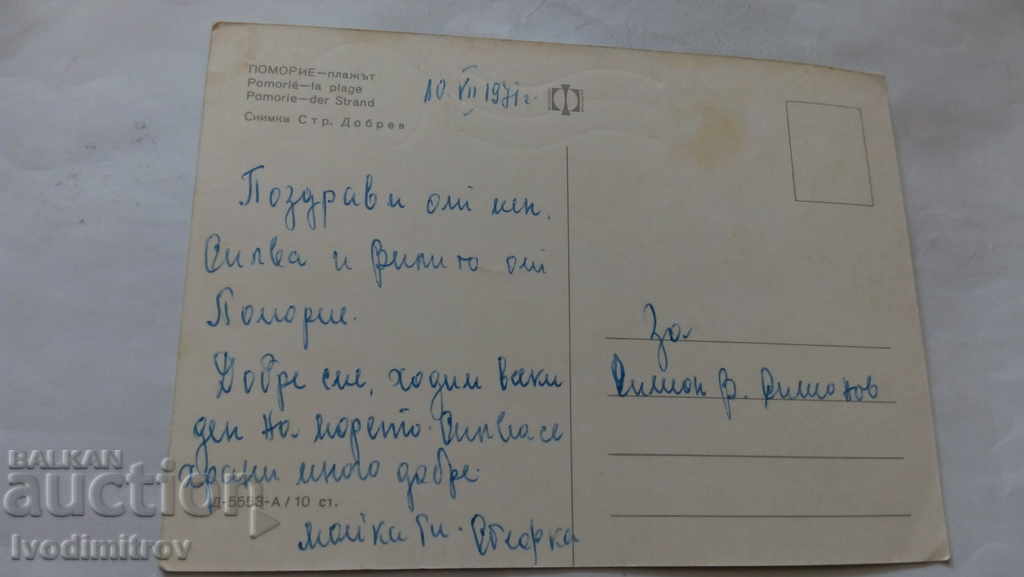 ПОМОРИЕ—плажът
Pomorié—la plage
Pomorie—der Strand
Снимки Стр. Добрев
10 VII 1971 г.
Поздрави от мен,
Силва и Филито от
Поморие.
Добре сме, ходим всеки
ден на морето. Силва се
храни много добре.
Майка ти
За
Симеон В. Симеонов
Д-5553-А/10 ст.
BALKAN
auction
Ivodimitrov